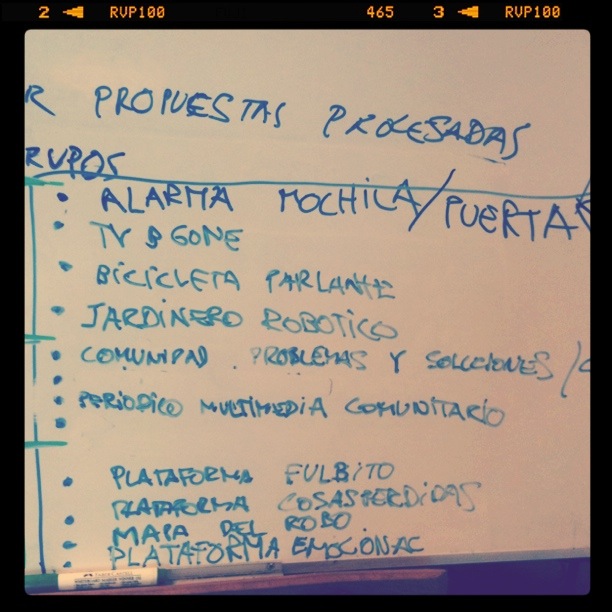 2 RVP100 465 3 RVP100
R PROPUESTAS PROCESADAS
RUPOS
• ALARMA MOCHILA/PUERTAS
• TV B GONE
• BICICLETA PARLANTE
• JARDINERO ROBOTICO
• COMUNIDAD . PROBLEMAS Y SOLUCIONES /
• PERIODICO MULTIMEDIA COMUNITARIO
• PLATAFORMA FULBITO
PLATAFORMA COSAS PERDIDAS
• MAPA DEL ROBO
• PLATAFORMA EMOCIONAL